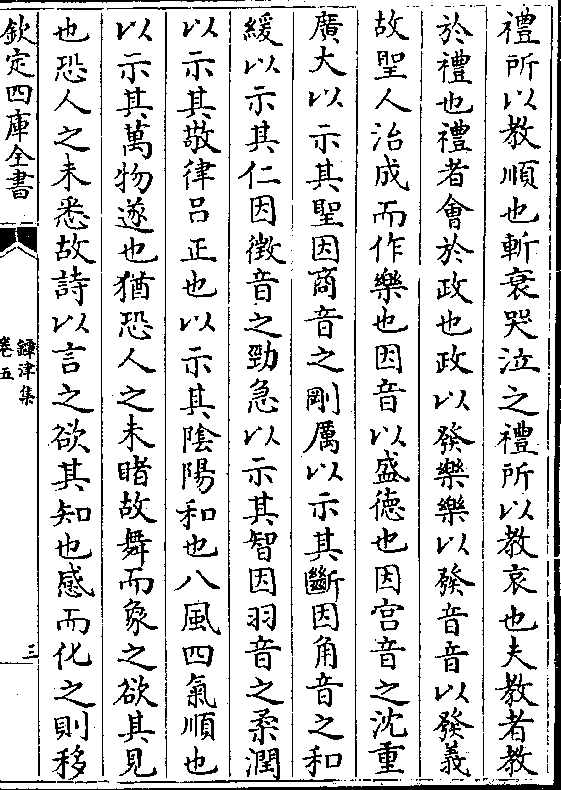 禮所以教順也斬衰哭泣之禮所以教哀也夫教者教
於禮也禮者會於政也政以發樂樂以發音音以發義
故聖人治成而作樂也因音以盛德也因宮音之沈重
廣大以示其聖因商音之剛厲以示其斷因角音之和
緩以示其仁因徵音之勁急以示其智因羽音之柔潤
以示其敬律呂正也以示其陰陽和也八風四氣順也
以示其萬物遂也猶恐人之未睹故舞而象之欲其見
也恐人之未悉故詩以言之欲其知也感而化之則移
欽定四庫全書
鐔津集
卷五
三